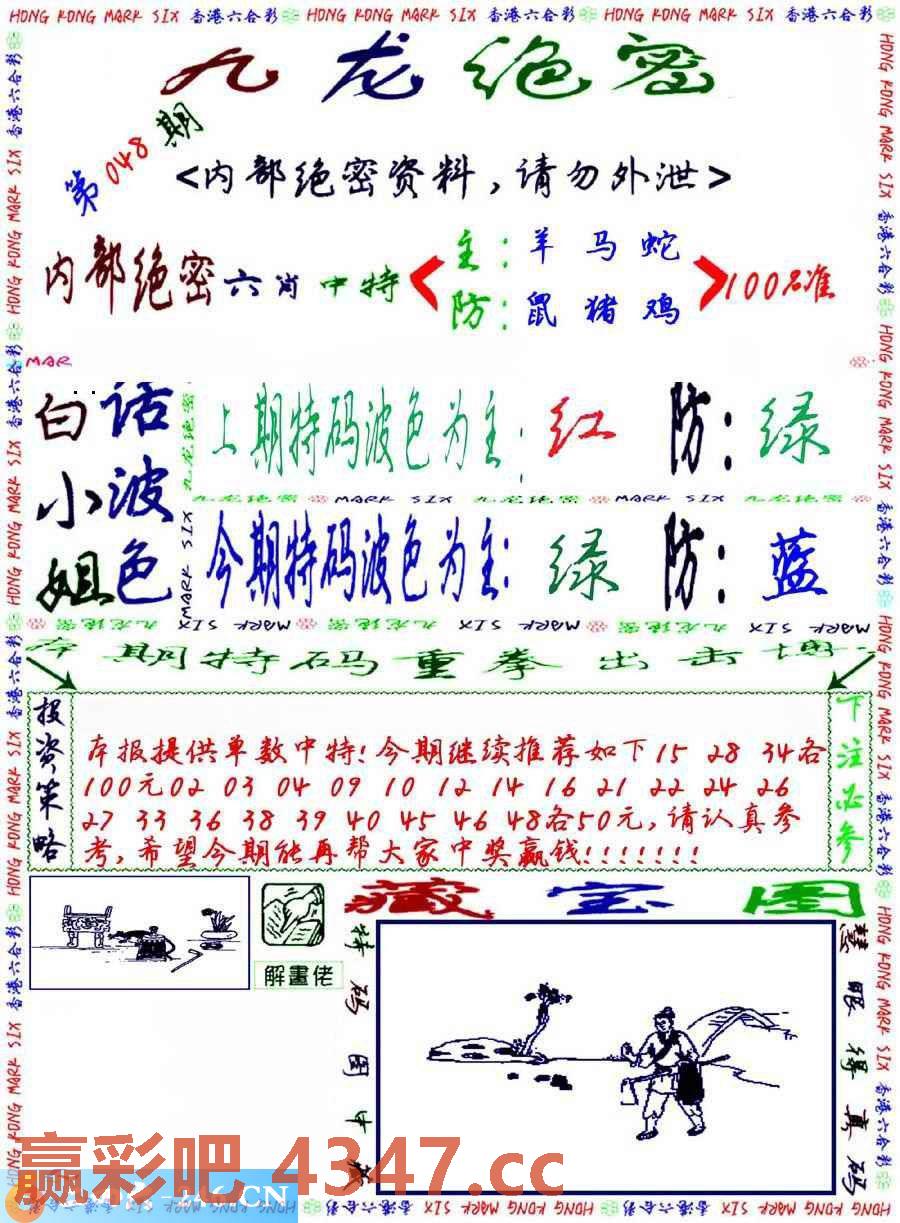 HONG KONG MARK SIX 香港六合彩 HONG KONG MARK SIX 香港六合彩 HONG KONG MARK SIX 香港六合彩
九龙绝密
第048期
<内部绝密资料,请勿外泄>
内部绝密六肖中特
主:羊马蛇
防:鼠猪鸡
100%准
MAR
白话小姐
波色
九龙绝密 MARK SIX
上期特码波色为主:红 防:绿
九龙绝密 MARK SIX 九龙绝密 MARK SIX 九龙绝密
今期特码波色为主:绿 防:蓝
九龙绝密 MARK SIX 九龙绝密 MARK SIX 九龙绝密 MARK SIX
本期特码重拳出击
投资策略
本报提供单数中特!今期继续推荐如下15 28 34各
100元02 03 04 09 10 12 14 16 21 22 24 26
27 33 36 38 39 40 45 46 48各50元,请认真参
考,希望今期能再帮大家中奖赢钱!!!!!!!
下注必参
藏宝图
解畫佬
特码图中
慧眼得真码
赢彩吧 4347.cc
.CN
香港六合彩 HONG KONG MARK SIX 香港六合彩 HONG KONG MARK SIX